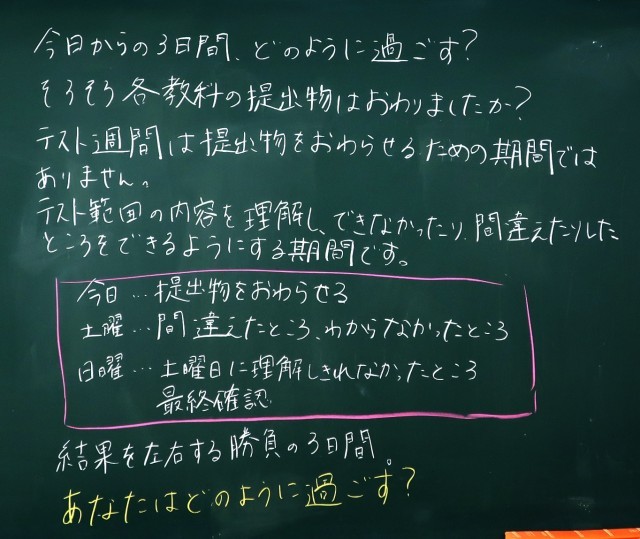 今日からの3日間、どのように過ごす?
そろそろ各教科の提出物はおわりましたか?
テスト週間は提出物をおわらせるための期間では
ありません。
テスト範囲の内容を理解し、できなかったり、間違えたりした
ところをできるようにする期間です。
今日…提出物をおわらせる
土曜…間違えたところ、わからなかったところ
日曜…土曜日に理解しきれなかったところ
最終確認
結果を左右する勝負の3日間。
あなたはどのように過ごす?